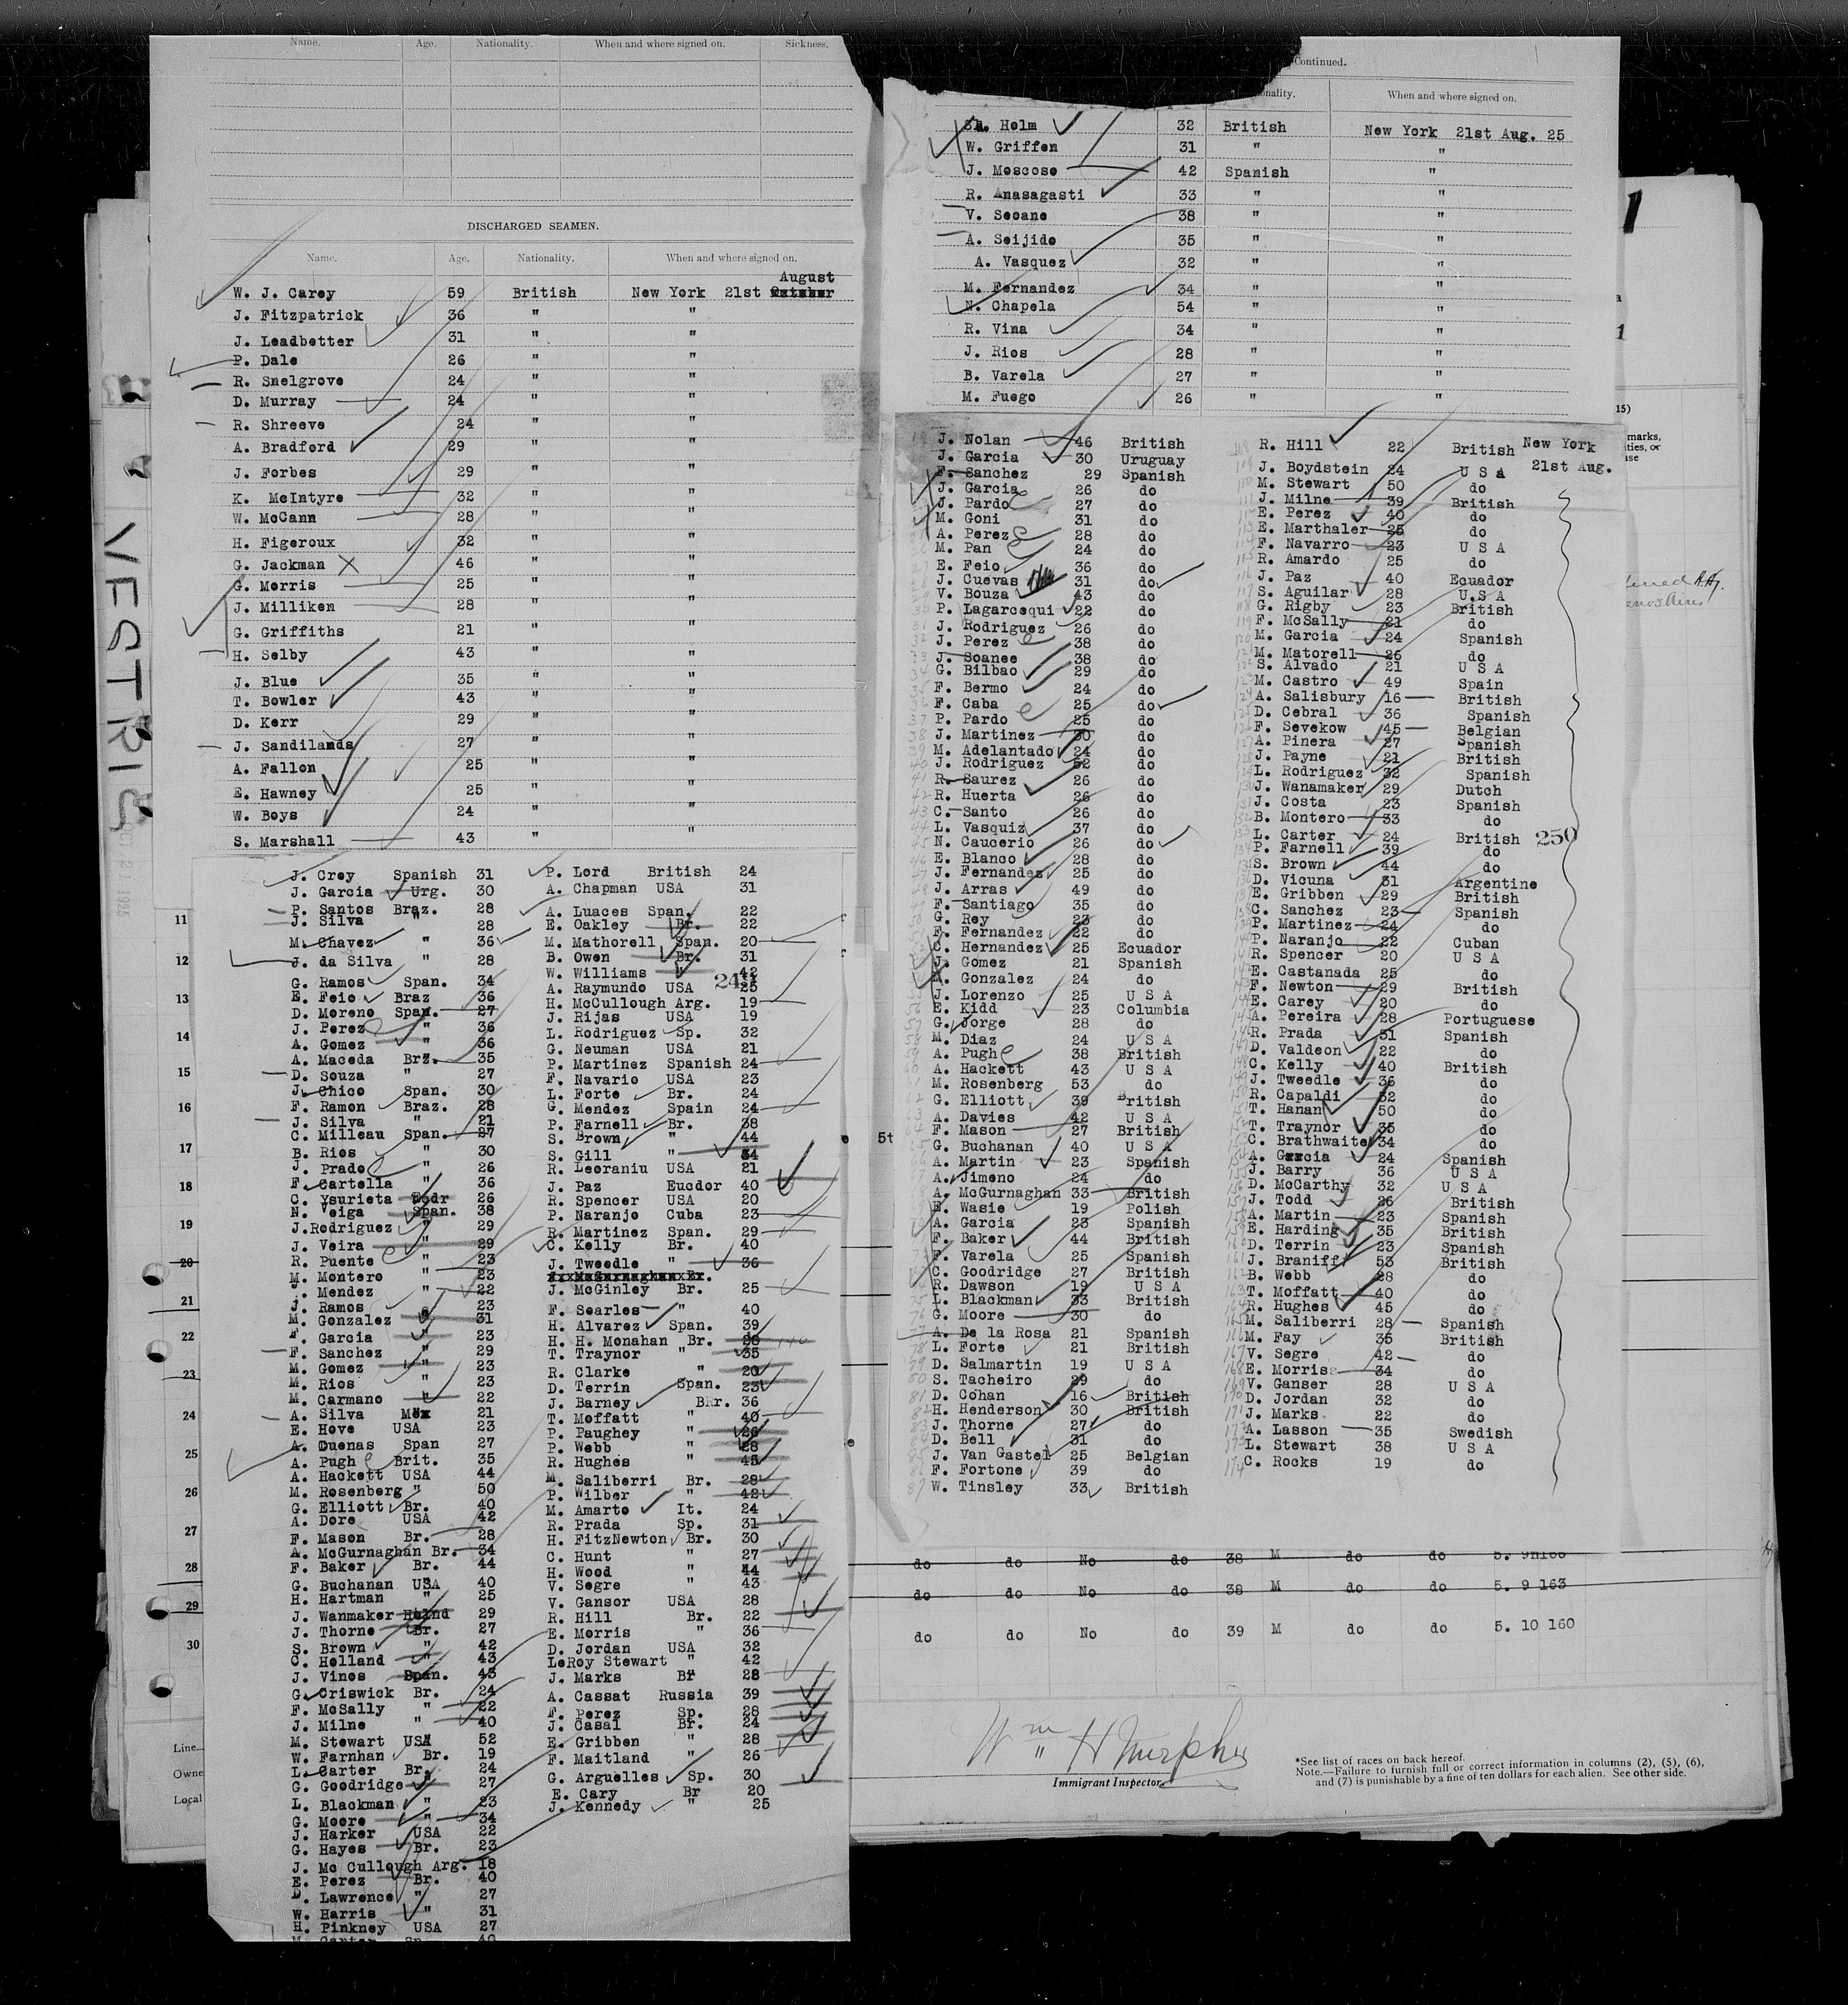 Name. Age. Nationality. When and where signed on. Sickness.
DISCHARGED SEAMEN.
Name. Age. Nationality. When and where signed on.
August
W. J. Carey 59 British New York 21st
J. Fitzpatrick 36 " "
J. Leadbetter 31 " "
P. Dale 26 " "
R. Snelgrove 24 " "
D. Murray 24 " "
R. Shreeve 24 " "
A. Bradford 29 " "
J. Forbes 29 " "
K. McIntyre 32 " "
W. McCann 28 " "
H. Figeroux 32 " "
G. Jackman 46 " "
G. Morris 25 " "
J. Milliken 28 " "
G. Griffiths 21 " "
H. Selby 43 " "
J. Blue 35 " "
T. Bowler 43 " "
D. Kerr 29 " "
J. Sandilands 27 " "
A. Fallon 25 " "
E. Hawney 25 " "
W. Boys 24 " "
S. Marshall 43 " "
J. Crey Spanish 31
J. Garcia Urg. 30
P. Santos Braz. 28
J. Silva " 28
M. Chavez " 36
J. da Silva " 28
G. Ramos Span. 34
E. Feio Braz 36
D. Moreno Span. 27
J. Perez " 36
A. Gomez " 36
A. Maceda Brz. 35
D. Souza " 27
J. Chico Span. 30
F. Ramon Braz. 28
J. Silva " 21
C. Milleau Span. 27
B. Rios " 30
J. Prado " 26
F. Cartella " 36
C. Ysurieta Ecdr 26
N. Veiga Span. 38
J.Rodriguez " 29
J. Veira " 29
R. Puente " 23
M. Montero " 23
. Mendez " 22
J. Ramos 23
M. Gonzalez " 31
F. Garcia " 23
F. Sanchez " 29
M. Gomez " 23
M. Rios " 23
M. Carmano " 22
A. Silva Mex 21
E. Hove USA 23
A. Duenas Span 27
A. Pugh Brit. 35
A. Hackett USA 44
M. Rosenberg " 50
G. Elliott Br. 40
A. Dore USA 42
F. Mason Br. 28
A. McGurnaghan Br. 34
F. Baker Br. 44
G. Buchanan USA 40
H. Hartman " 25
J. Wanmaker Holnd 29
J. Thorne Br. 27
S. Brown " 42
C. Holland " 43
J. Vinos Span. 43
G. Criswick Br. 24
F. McSally " 22
J. Milne " 40
M. Stewart USA 52
W. Farnhan Br. 19
L. Carter Br. 24
G. Goodridge " 27
L. Blackman " 23
G. Moore " 34
J. Harker USA 22
G. Hayes Br. 23
J. Mc Cullough Arg. 18
E. Perez Br. 40
D. Lawrence " 27
W. Harris " 31
H. Pinkney USA 27
P. Lord British 24
A. Chapman USA 31
A. Luaces Span. 22
E. Oakley Br. 22
M. Mathorell Span. 20
B. Owen Br. 31
W. Williams " 42
A. Raymundo USA 25
H. McCullough Arg. 19
J. Rijas USA 19
L. Rodriguez Sp. 32
G. Neuman USA 21
P. Martinez Spanish 24
F. Navario USA 23
L. Forte Br. 24
G. Mendez Spain 24
P. Farnell Br. 38
S. Brown " 44
S. Gill " 34
R. Leoraniu USA 21
J. Paz Eucdor 40
R. Spencer USA 20
P. Naranjo Cuba 23
R. Martinez Span. 29
C. Kelly Br. 40
J. Tweedle " 36
J. McGinley Br. 25
F. Searles " 40
H. Alvarez Span. 39
H. H. Monahan Br. 20
T. Traynor " 35
R. Clarke " 20
D. Terrin Span. 23
J. Barney BRr. 36
T. Moffatt " 40
P. Paughey " 26
P. Webb " 28
R. Hughes " 45
M. Saliberri Br. 28
P. Wilber " 42
M. Amarto It. 24
R. Prada Sp. 31
H. FitzNewton Br. 30
C. Hunt " 27
H. Wood " 44
V. Segre " 43
V. Gansor USA 28
R. Hill Br. 22
E. Morris " 36
D. Jordan USA 32
LeRoy Stewart " 42
J. Marks Br 28
A. Cassat Russia 39
F. Perez Sp. 28
J. Casal Br. 24
E. Gribben " 28
F. Maitland " 26
G. Arguelles Sp. 30
E. Cary Br 20
J. Kennedy " 25
Continued.
When and where signed on.
Holm 32 British New York 21st Aug. 25
W. Griffen 31 " "
J. Moscoso 42 Spanish "
R. Anasagasti 33 " "
V. Seoane 38 " "
A. Seijido 35 " "
A. Vasquez 32 " "
M. Fernandez 34 " "
N. Chapela 54 " "
R. Vina 34 " "
J. Rios 28 " "
B. Varela 27 " "
M. Fuego 26 " "
J. Nolan 46 British
J. Garcia 30 Uruguay
F. Sanchez 29 Spanish
J. Garcia 26 do
J. Pardo 27 do
M. Goni 31 do
A. Perez 28 do
M. Pan 24 do
E. Feio 36 do
J. Cuevas 31 do
V. Bouza 43 do
P. Lagarcequi 22 do
J. Rodriguez 26 do
J. Perez 38 do
J. Soanee 38 do
G. Bilbao 29 do
F. Bermo 24 do
F. Caba 25 do
P. Pardo 25 do
J. Martinez 30 do
M. Adelantado 24 do
J. Rodriguez 52 do
R. Saurez 26 do
R. Huerta 26 do
C. Santo 26 do
L. Vasquiz 37 do
N. Caucerio 26 do
E. Blanco 28 do
J. Fernandez 25 do
J. Arras 49 do
F. Santiago 35 do
G. Rey 23 do
F. Fernandez 22 do
C. Hernandez 25 Ecuador
J. Gomez 21 Spanish
Gonzalez 24 do
J. Lorenzo 25 U S A
E. Kidd 23 Columbia
G. Jorge 28 do
M. Diaz 24 U S A
A. Pugh 38 British
A. Hackett 43 U S A
M. Rosenberg 53 do
G. Elliott 39 British
A. Davies 42 U S A
F. Mason 27 British
G. Buchanan 40 U S A
A. Martin 23 Spanish
A. Jimeno 24 do
A. McGurnaghan 33 British
E. Wasie 19 Polish
A. Garcia 23 Spanish
F. Baker 44 British
F. Varela 25 Spanish
C. Goodridge 27 British
R. Dawson 19 U S A
L. Blackman 33 British
G. Moore 30 do
A. De la Rosa 21 Spanish
L. Forte 21 British
D. Salmartin 19 U S A
S. Tacheiro 29 do
D. Cohan 16 British
H. Henderson 30 British
J. Thorne 27 do
D. Bell 31 do
J. Van Gastel 25 Belgian
F. Fortone 39 do
W. Tinsley 33 British
R. Hill 22 British New York
21st Aug.
J. Boydstein 24 U S A
M. Stewart 50 do
J. Milne 39 British
E. Perez 40 do
E. Marthaler 25 do
F. Navarro 23 U S A
R. Amardo 25 do
J. Paz 40 Ecuador
S. Aguilar 28 U.S A
G. Rigby 23 British
F. McSally 21 do
M. Garcia 24 Spanish
M. Matorell 26 do
S. Alvado 21 U S A
M. Castro 49 Spain
A. Salisbury 16 British
D. Cebral 36 Spanish
F. Sevekow 45 Belgian
A. Pinera 27 Spanish
J. Payne 21 British
L. Rodriguez 32 Spanish
J. Wanamaker 29 Dutch
J. Costa 23 Spanish
B. Montero 33 do
L. Carter 24 British 250
P. Farnell 39 do
S. Brown 44 do
D. Vicuna 31 Argentine
E. Gribben 29 British
C. Sanchez 23 Spanish
P. Martinez 24 do
P. Naranjo 22 Cuban
R. Spencer 20 U S A
E. Castanada 25 do
F. Newton 29 British
E. Carey 20 do
A. Pereira 28 Portuguese
R. Prada 31 Spanish
D. Valdeon 22 do
C. Kelly 40 British
J. Tweedle 36 do
R. Capaldi 32 do
T. Hanan 50 do
T. Traynor 35 do
C. Brathwaite 34 do
A. Garcia 24 Spanish
J. Barry 36 U S A
D. McCarthy 32 U S A
J. Todd 26 British
A. Martin 23 Spanish
E. Harding 35 British
D. Terrin 23 Spanish
J. Braniff 53 British
B. Webb 28 do
T. Moffatt 40 do
R. Hughes 45 do
M. Saliberri 28 Spanish
M. Fay 35 British
V. Segre 42 do
E. Morris 34 do
V. Ganser 28 U S A
D. Jordan 32 do
J. Marks 22 do
A. Lasson 35 Swedish
L. Stewart 38 U S A
C. Rocks 19 do
VESTRIS
11
12
13
14
15
16
17
18
19
20
21
22
23
24
25
26
27
28
29
30
do do No do 38 M do do
do do No do 38 M do do 5. 9 163
do do No do 39 M do do 5. 10 160
Line
Owne
Local
Wm H Murphy
Immigrant Inspector.
*See list of races on back hereof.
Note.—Failure to furnish full or correct information in columns (2), (5), (6),
and (7) is punishable by a fine of ten dollars for each alien. See other side.